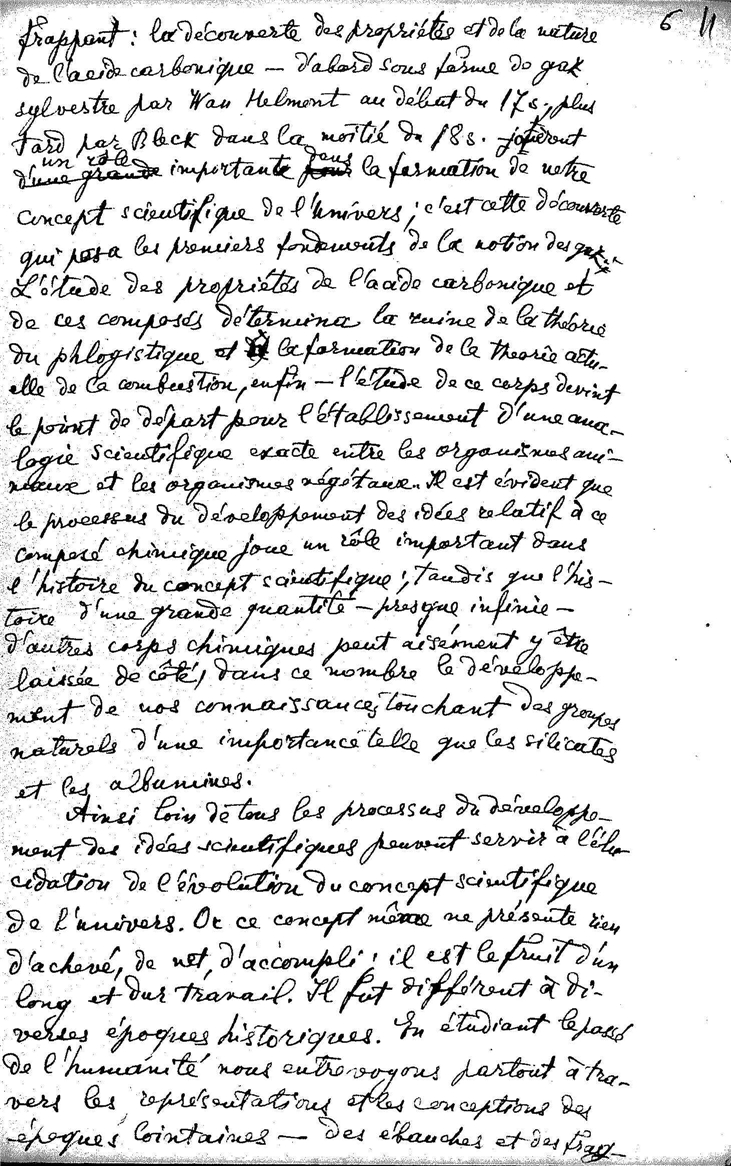 6 11
frappant : la découverte des propriétés et de la nature
de l'acide carbonique — d'abord sous forme de gaz
sylvestre par Van Helmont au début du 17 s., plus
tard par Black dans la moitié du 18 s. jouèrent
un rôle dans
d'une grande importante pour la formation de notre
concept scientifique de l'univers ; c'est cette découverte
qui posa les premiers fondements de la notion des gaz.
L'étude des propriétés de l'acide carbonique et
de ces composés détermina la ruine de la théorie
du phlogistique et la formation de la theorie actu-
elle de la combustion, enfin — l'étude de ce corps devint
le point de départ pour l'établissement d'une ana-
logie scientifique exacte entre les organismes ani-
maux et les organismes négétaux. Il est évident que
le processus du développement des idées relatif à ce
composé chimique joue un rôle important dans
l'histoire du concept scientifique ; tandis que l'his-
toire d'une grande quantité — presque infinie —
d'autres corps chimiques peut aisément y être
laissée de côté, dans ce nombre le développe-
ment de nos connaissances touchant des groupes
naturels d'une importance telle que les silicates
et les albumines.
Ainsi loin de tous les processus du développe-
ment des idées scientifiques peuvent servir à l'élu-
cidation de l'évolution du concept scientifique
de l'univers. Or ce concept même ne présente rien
d'achevé, de net, d'accompli : il est le fruit d'un
long et dur travail. Il fut différent à di-
verses époques historiques. En étudiant le passé
de l'humanité nous entrevoyons partout à tra-
vers les représentations et les conceptions des
époques lointaines — des ébauches et des frag-